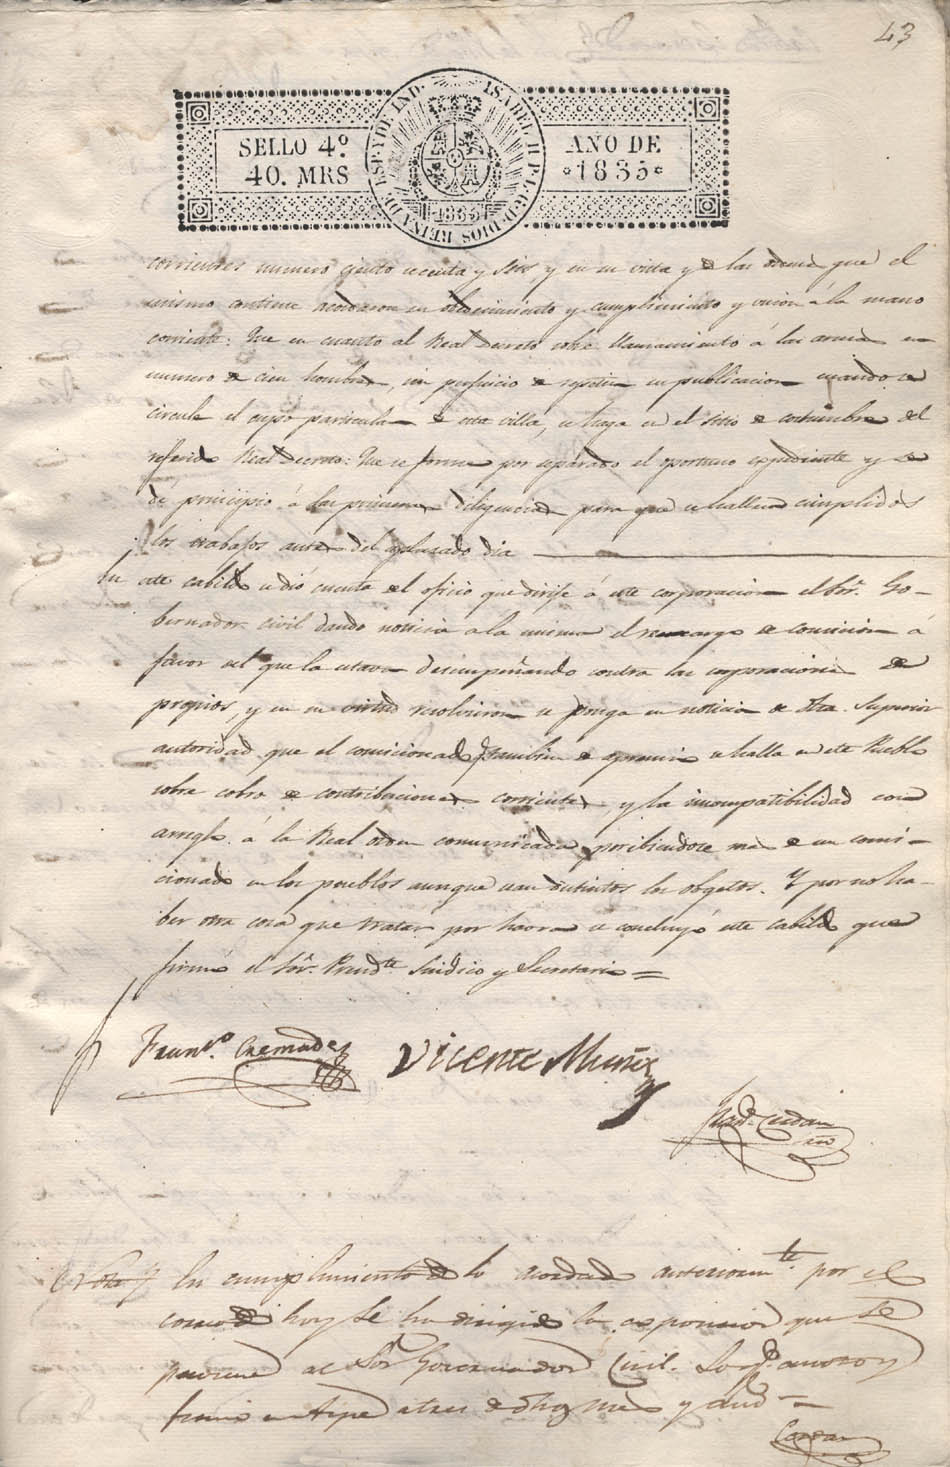 43
SELLO 4º
40. MRS
ISABEL II P. L. G. DE DIOS REINA DE ESP. Y DE IND.
1835
AÑO DE
1835
corrientes numero ciento y seis y en su vista y de las ordenes que el
mismo contiene acordaron su obedecimiento y cumplimiento y union á la mano
corriente: Que en cuanto al Real Decreto sobre llamamiento á las armas en
numero de cien hombres, sin perjuicio de repetir su publicacion cuando se
circule el cupo particular de esta villa, se haga en el sitio de costumbre del
referido Real Decreto: Que se forme por separado el oportuno expediente y se
dé principio á las primeras diligencias para que se hallen cumplidos
los trabajos antes del aplazado dia
En este cabildo se dió cuenta del oficio que dirije á esta corporacion el Sor. Go-
bernador civil dando noticia a la misma el de comision á
favor del que la estava desempeñando contra las corporaciones de
propios, y en su virtud resolvieron se ponga en noticia de dha. Superior
autoridad que el comicionado tambien de apremio se halla en este Pueblo
sobre cobro de contribuciones corrientes, y la incompatibilidad con
arreglo á la Real orden comunicada proibiendose mas de un comi-
cionado en los pueblos aunque sean distintos los objetos. Y por no ha-
ber otra cosa que tratar por haora se concluyó este cabildo que
firmó el Sor. Presdte Sindico y Secretario =
Franco. Cremades
Vicente Muñoz
Nota / En cumplimiento de lo acordado anteriormte. por el
de hoy se ha dirigido la esposicion que se
previene al Sor Governador Civil. Lo q. anoto y
firmo en Aspe a tres de dho mes y año =